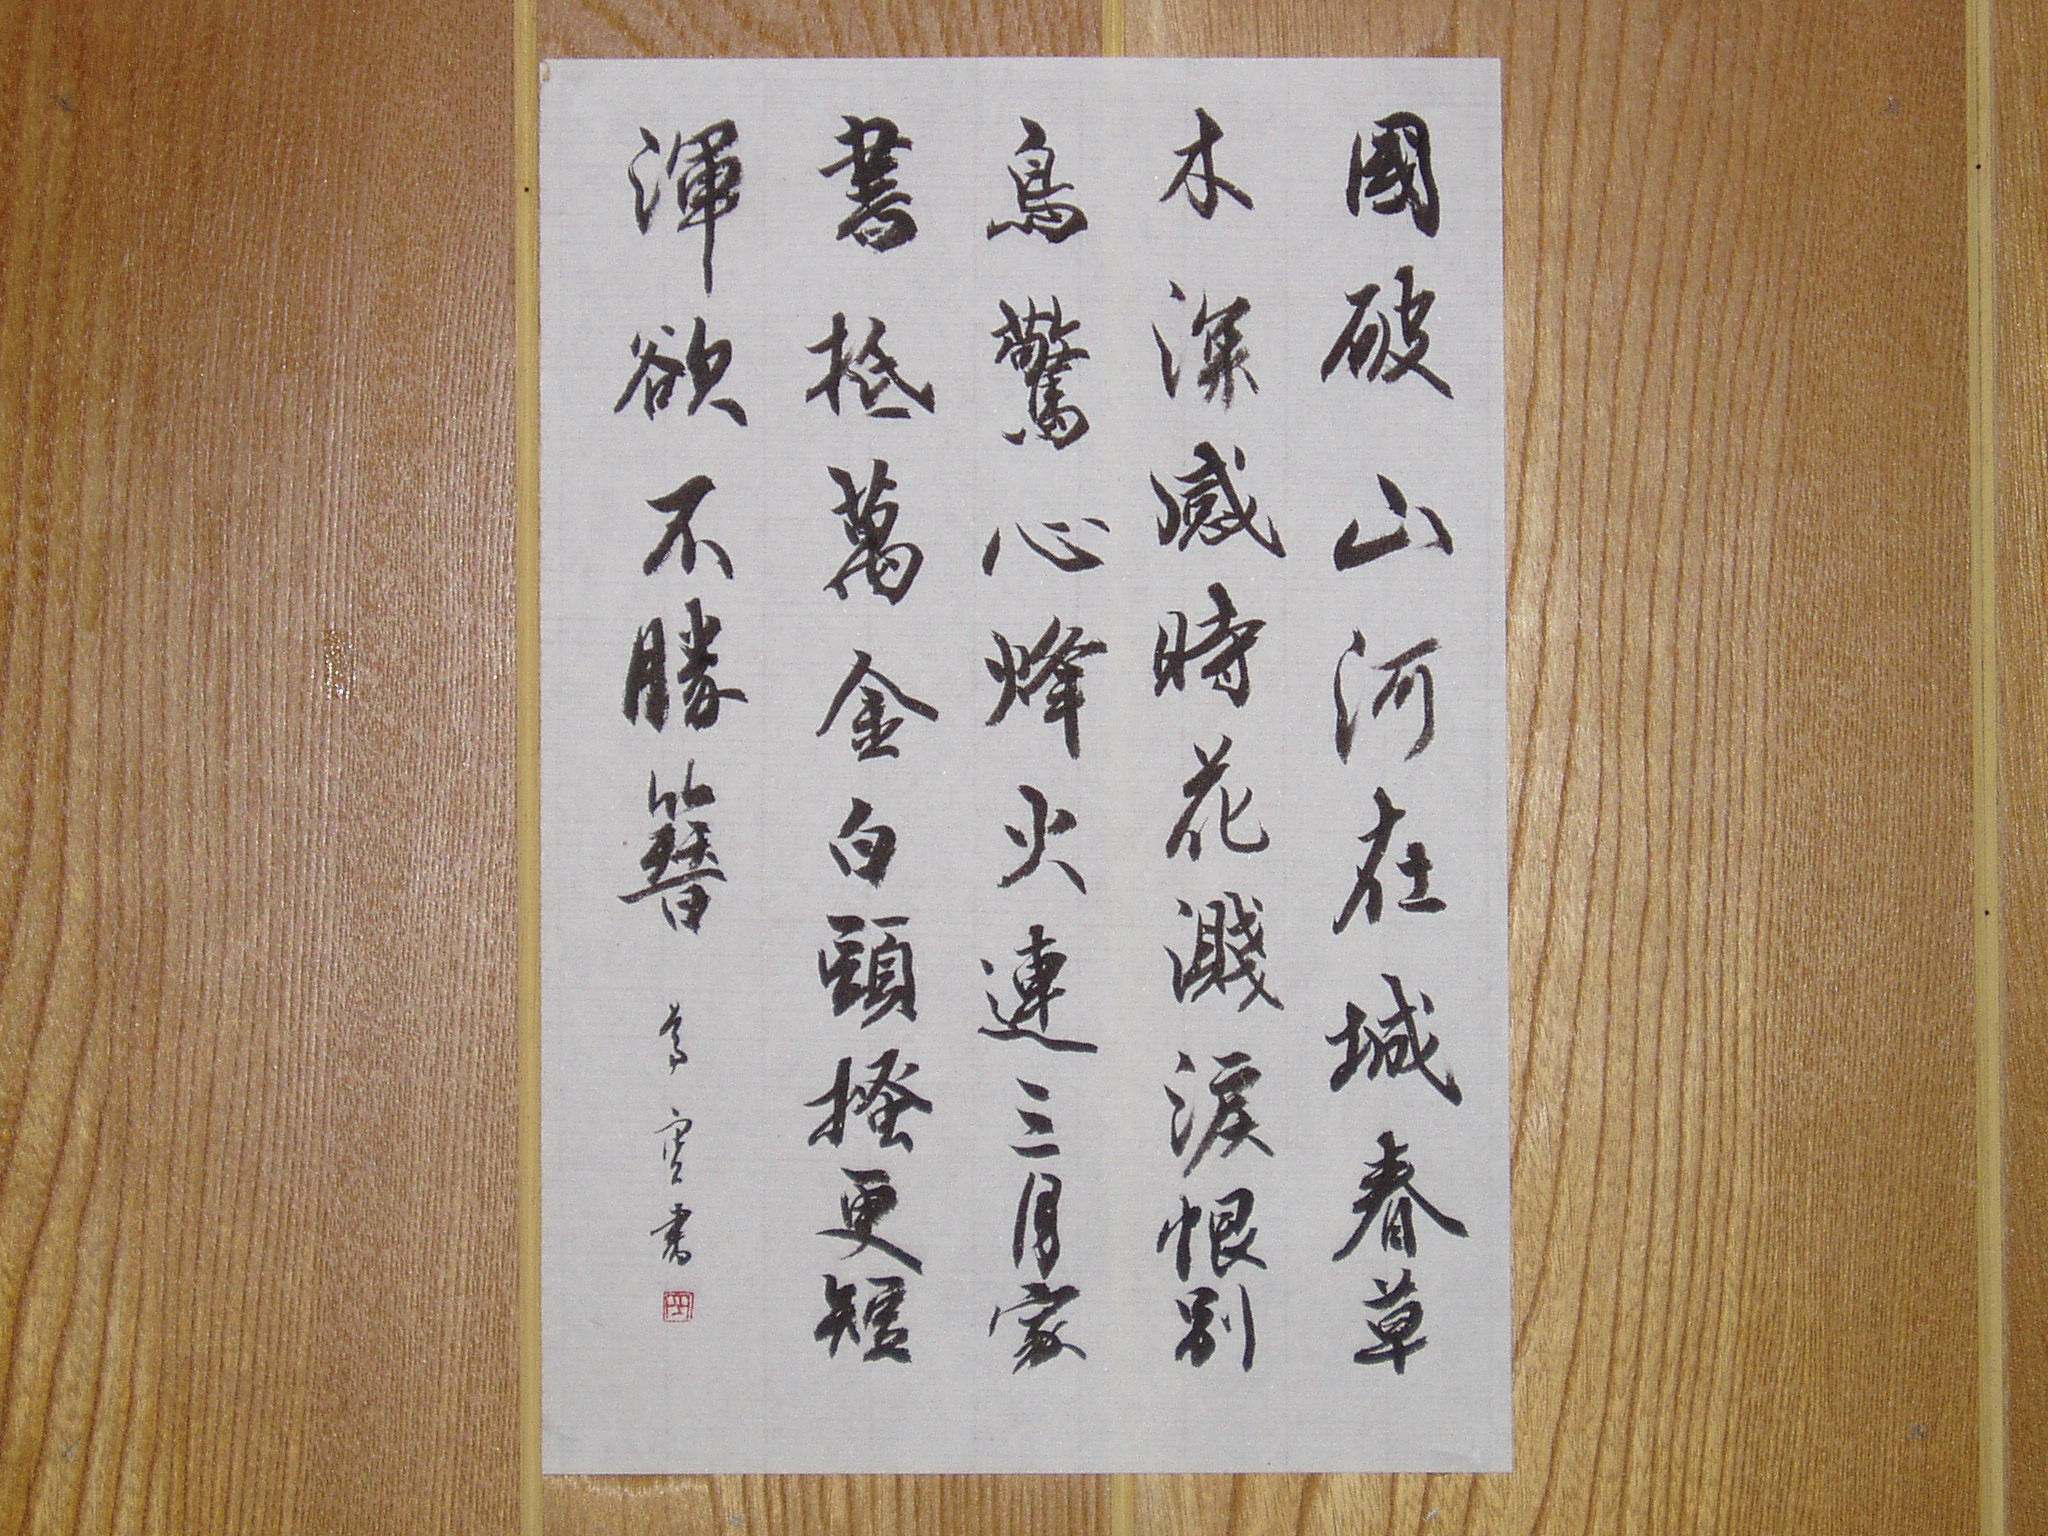 國破山河在城春草
木深感時花濺淚恨別
鳥驚心烽火連三月家
書抵萬金白頭搔更短
渾欲不勝簪
書